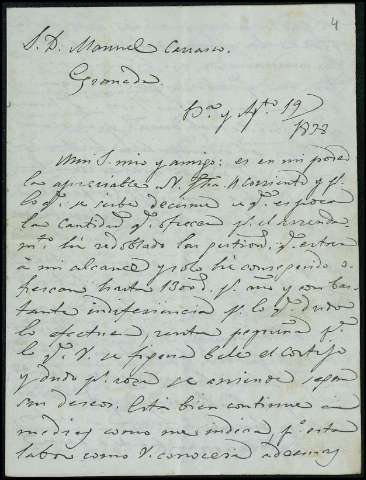 4
S. D. Manuel Carrasco.
Granada.
Bª y Agto 19
1878
Muy S. mio y amigo: es en mi poder
la apreciable N. fha 11 corriente y pr
lo q. se sirbe decirme de q. es poca
la cantidad q. ofrecen pr. el arrenda-
mto. hé redoblado las gestiones q. estan
á mi alcance y solo hé conseguido o-
frescan hasta 1300 pr. año y con bas-
tante indiferiencia pr. lo q. dudo
lo efectuen renta pequeña pa.
lo q. V. se figura bale el cortijo
y dudo pr. ora se arriende segun
sus deseos. Está bien continue á
medias como me indica pr. esta
labor como V. conocerá ademas